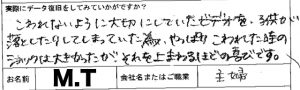 実際にデータ復旧をしてみていかがですか?
こわれないように大切にしていたビデオを、子供が
落としたりしてしまっていた為、やっぱりこわれた時の
ショックは大きかったが それを上まわるほどの喜びです。
お名前 M.T 会社名またはご職業 主婦